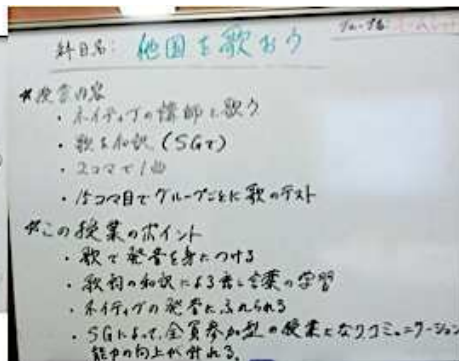 グループ名:
科目名: 他国を歌おう
*授業内容
・ネイティブの講師と歌う
・歌を和訳(SGで)
・2コマで1曲
・15コマ目でグループごとに歌のテスト
*この授業のポイント
・歌で発音を身につける
・歌詞の和訳による言葉の学習
・ネイティブの発音にふれられる
・SGによって、全員参加型の授業となりコミュニケーション
能力の向上が計れる。